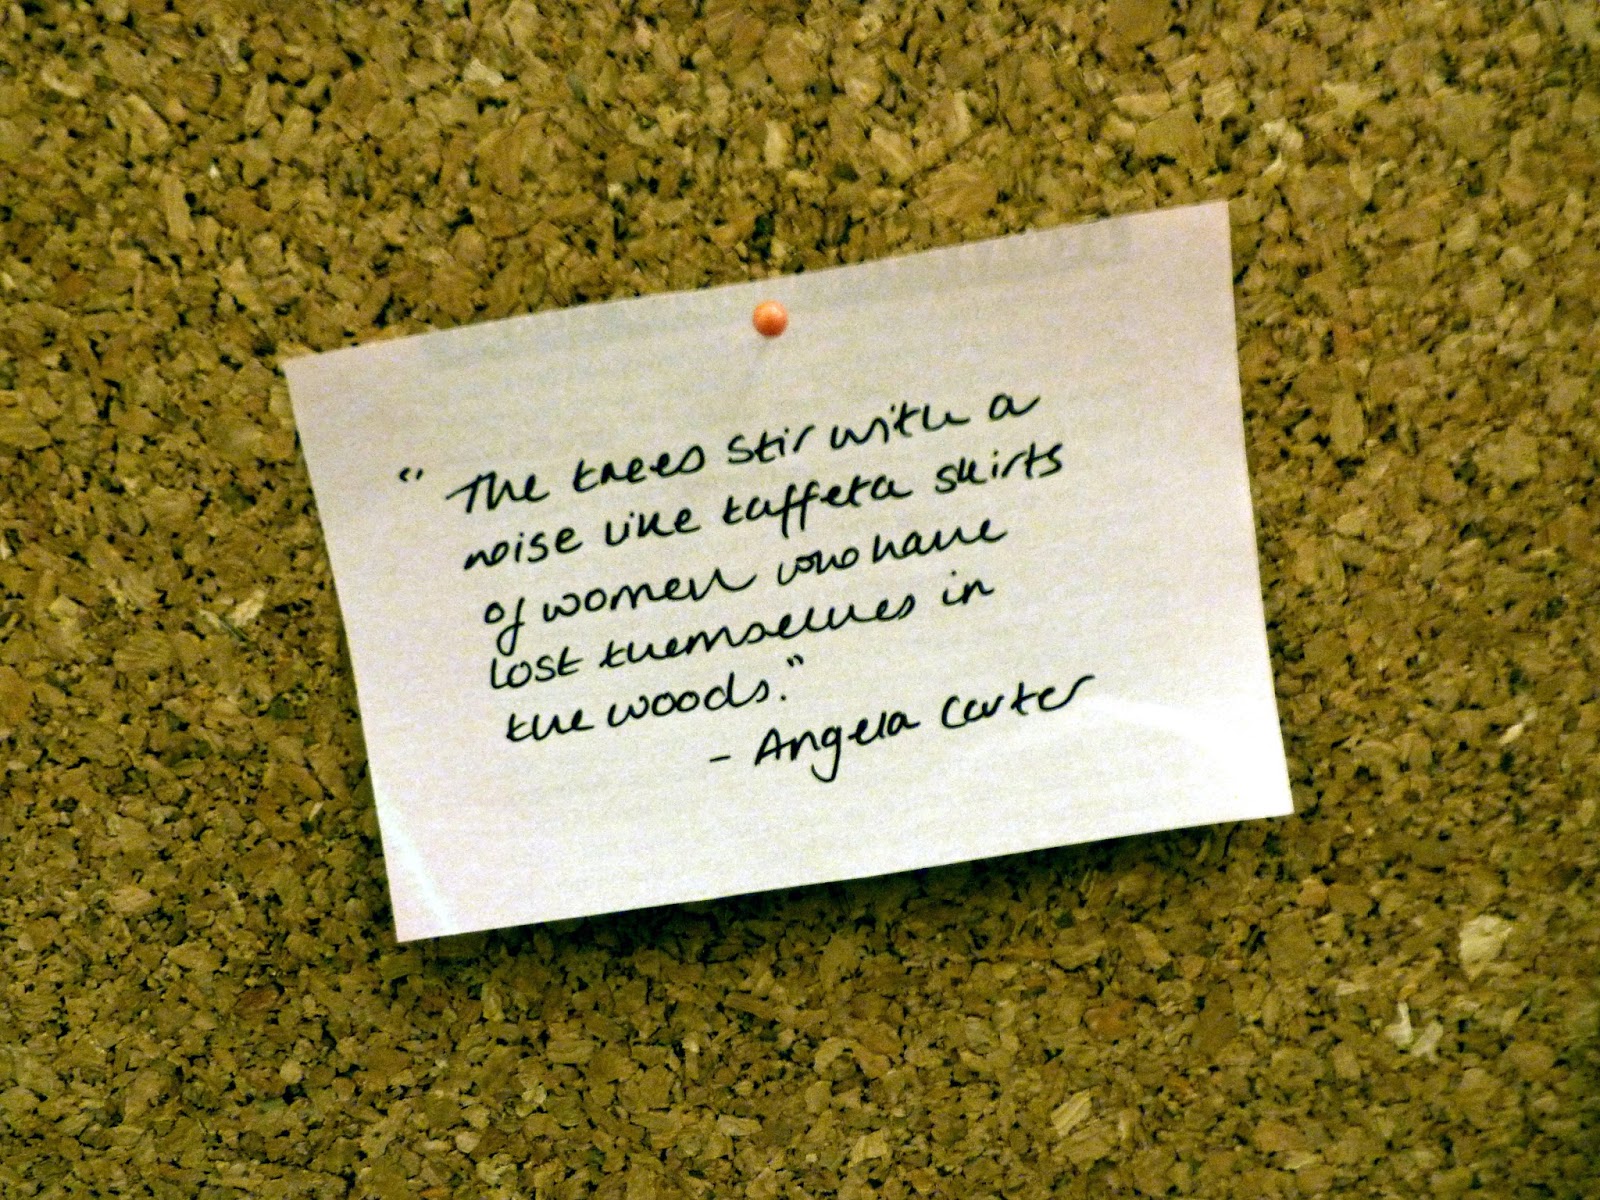 "The trees stir with a
noise like taffeta skirts
of women who have
lost themselves in
the woods."
- Angela Carter